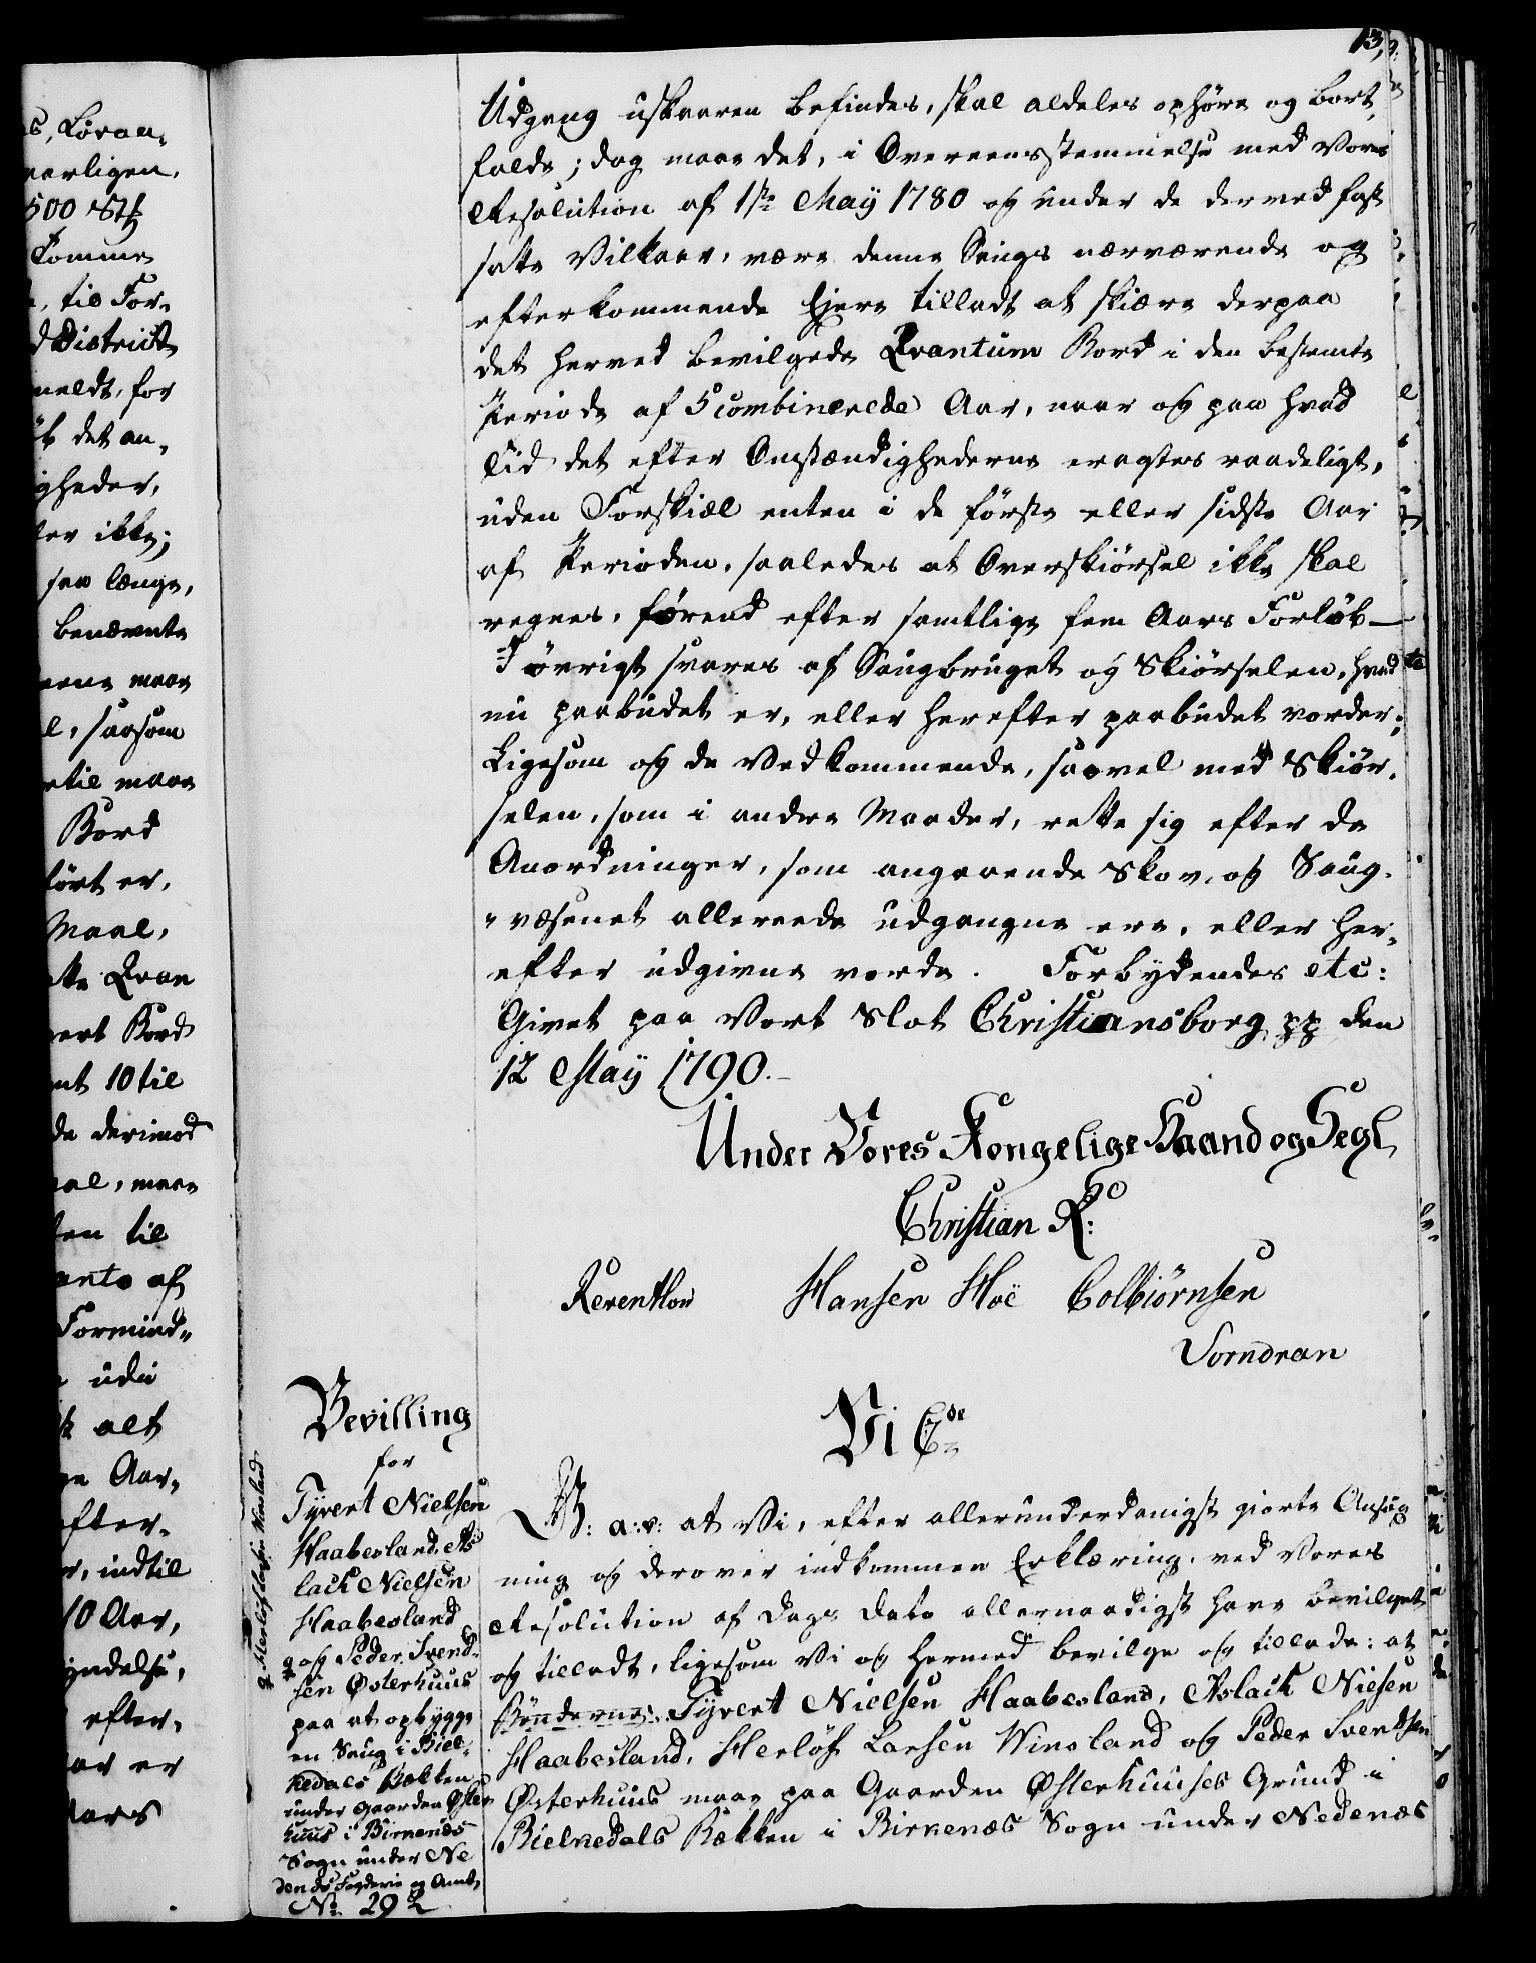 s, Lovan-
aarligen,
500 Stk
komme
, til For-
d District
meldt, for
det an-
gheder,
ler ikke;
saa længe,
benævnte
maae
l, saasom
til maae
Bord
ført er,
Maal,
tte Qvan
Bord
10 til
de derimod
al, maae
ten til
af
Formind-
uden
alt
Aar,
after-
r, indtil
10 Aar,
yndelse,
efter-
ar er
Aars
13,
Udgang uskaaren befindes, skal aldeles ophøre og bort,
falde; dog maae det, i Overeensstemmelse med Vores
Resolution af 1ste Maÿ 1780 og under de derved fast
satte Vilkaar, være denne Saugs nærværende og
efterkommende Ejere tilladt at skiære derpaa
det herved bevilgede Qvantum Bord i den bestemte
Periode af 5 combinerede Aar, naar og paa hvad
Tid det efter Omstændighederne eragtes raadeligt,
uden Forskiæl enten i de første eller sidste Aar
af Perioden, saaledes at Overskiørsel ikke skal
regnes, førend efter samtlige fem Aars Forløb —
I øvrigt svares af Saugbruget og Skiørselen, hvad
nu paabudet er, eller herefter paabudet vorder;
Ligesom og de Vedkommende, saavel med Skiør-
selen, som i andre Maader, rette sig efter de
Anordninger, som angaaende Skov, og Saug-
væsenet allereede udgangne ere, eller her-
efter udgivne vorde. Forbydendes etc:
Givet paa Vort Slot Christiansborg pp den
12 Maÿ 1790.-
Under Vores Kongelige Haand og Segl
Christian R:
Reventlow Hansen Hoë Colbiørnsen
Vorndran
Bevilling
for
Tyvert Nielsen
Haabesland, As
lack Nielsen
Haabesland
og Peder Svend-
sen Østerhuus
paa at opbygge
en Saug i Biel-
kedals Bækken
under Gaarden Øster
huus i Birkenæs
Sogn under Ne
denæs Fogderie og Amt
No 292
Herlof Larsen Winsland
Vi C7de
G: a: v: at Vi, efter allerunderdanigst giorte Ansøg
ning og derover indkommen Erklæring, ved Vores
Resolution af Dags Dato allernaadigst have bevilget
og tilladt, ligesom Vi og hermed bevilge og tillade: at
Bønderne: Tyvert Nielsen Haabesland, Aslack Nielsen
Haabesland, Herlöf Larsen Winsland og Peder Svendsen
Østerhuus maae paa Gaarden Østerhuuses Grund i
Bielkedals Bækken i Birkenæs Sogn under Nedenæs